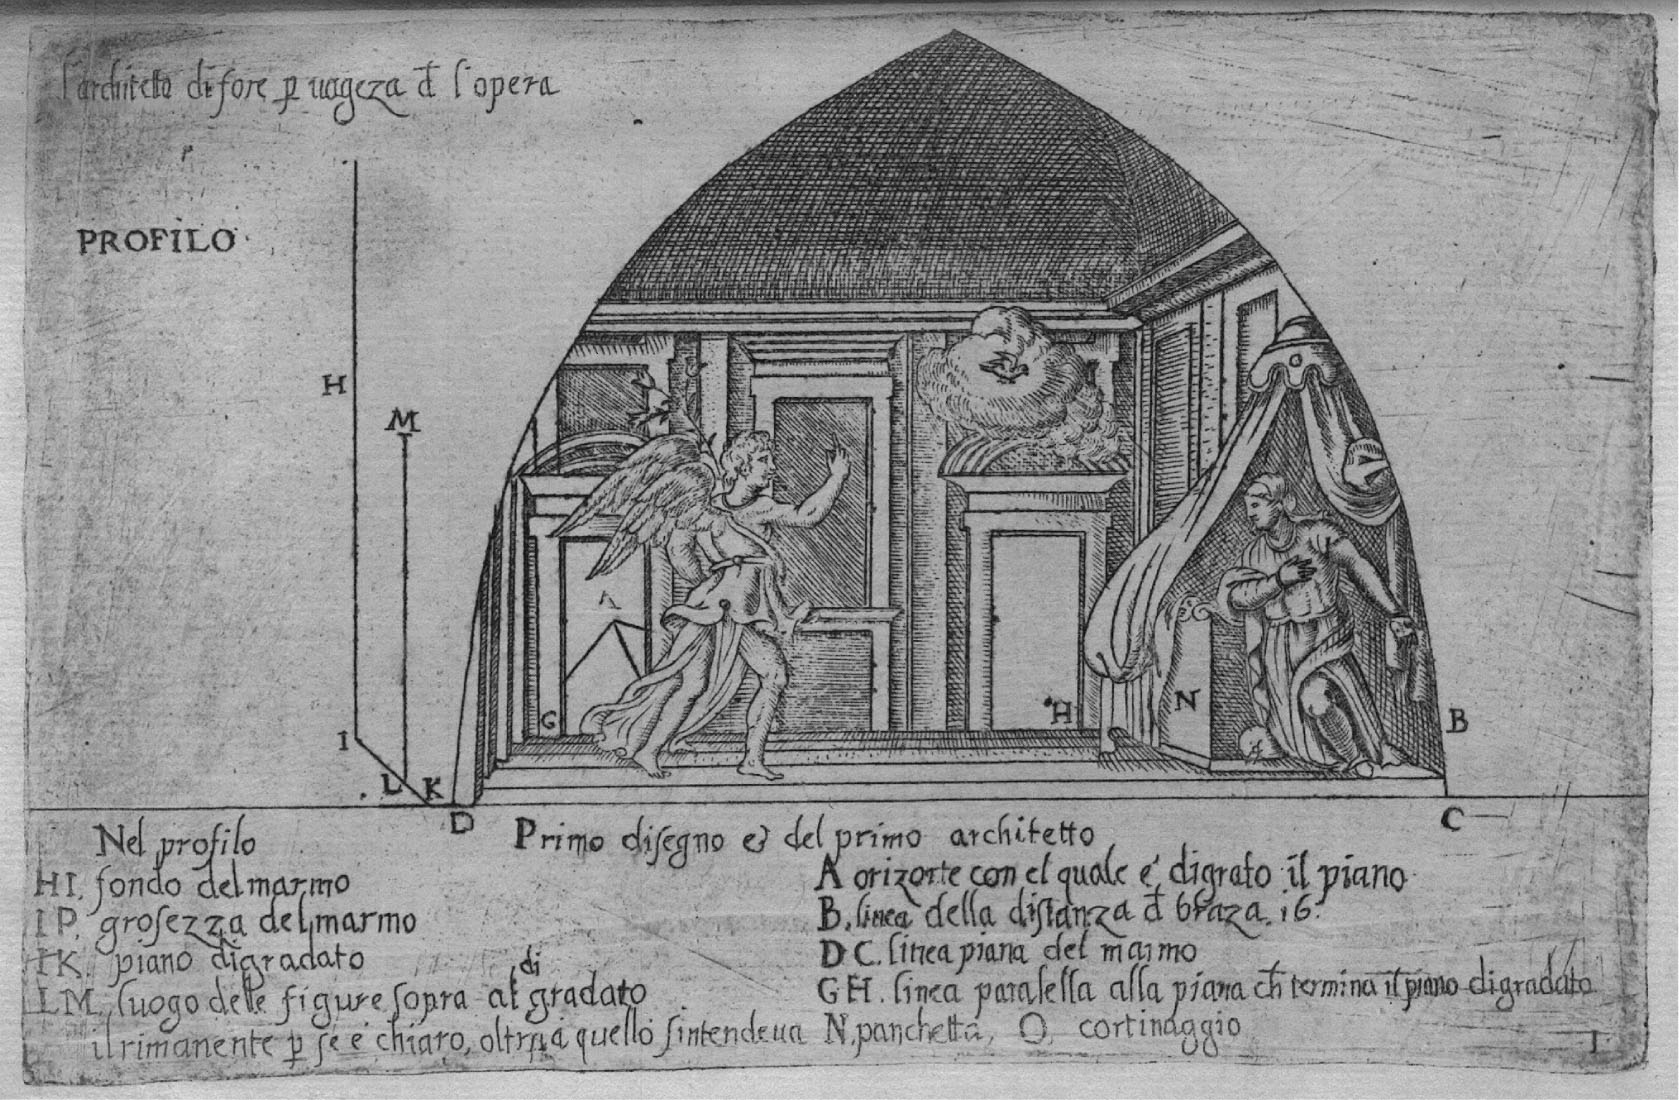 l'architetto di fore p vageza d l'opera
PROFILO
H
M
I
L
K
D
A
G
H
N
B
C
Nel profilo
HI. fondo del marmo
IP. grosezza del marmo
IK. piano digradato
di
LM. luogo dele figure sopra al gradato
il rimanente p se e chiaro, oltra a quello sintendeua N. panchetta, O. cortinaggio
Primo disegno e del primo architetto
A orizorte con el quale e' digrato il piano
B. linea della distanza d braza. 16.
DC. linea piana del marmo
GH. linea paralella alla piana ch termina il piano digradato
1